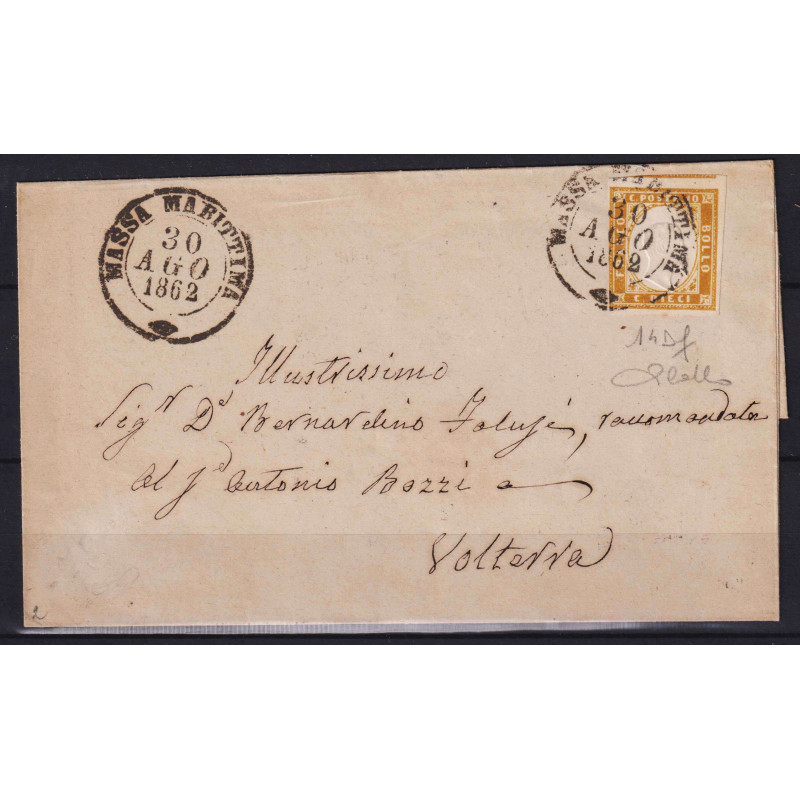 MASSA MARITTIMA
30
AGO
1862
MASSA MARITTIMA
30
AGO
1862
C POSTALE
BOLLO
C DIECI
14Df
Illustrissimo
Sigr D. Bernardino
Al Sd Antonio Bozzi a
Volterra
2